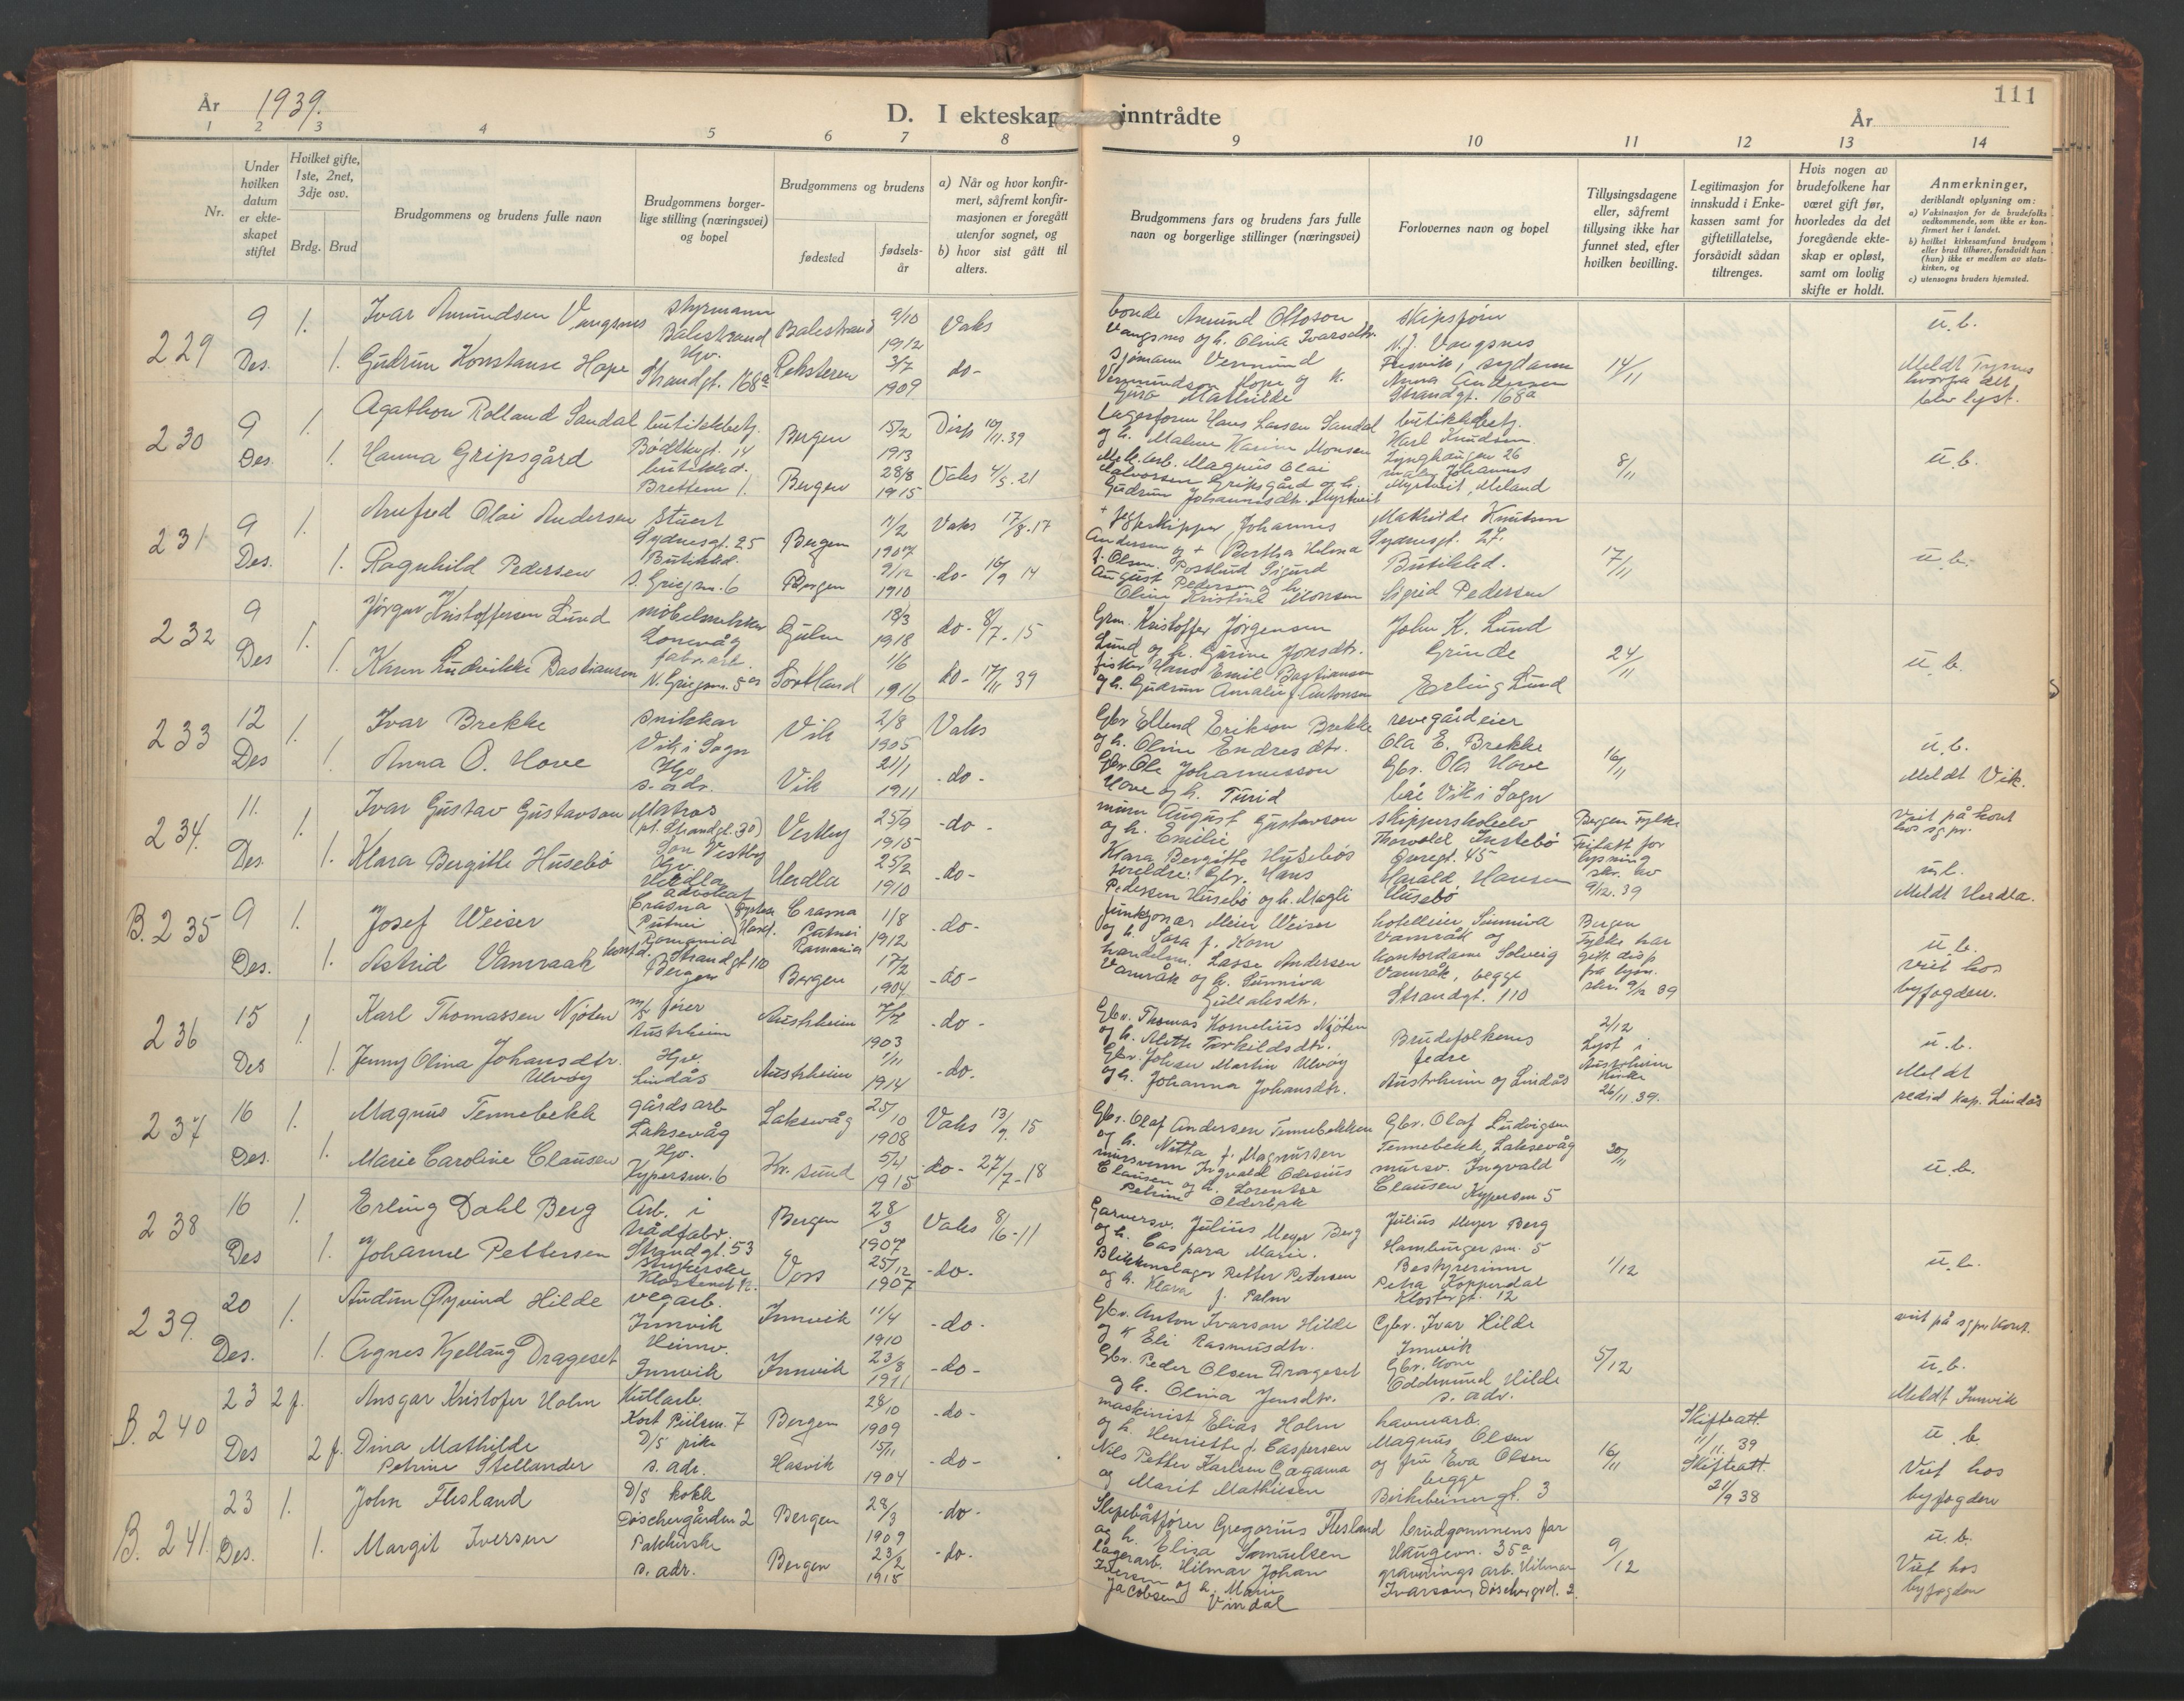 År 1939.
D. I ekteskap inntrådte
År
111
1 2 3 4 5 6 7 8 9 10 11 12 13 14
Nr.
Under hvilken datum er ekteskapet stiftet
Hvilket gifte, 1ste, 2net, 3dje osv.
Brdg. Brud
Brudgommens og brudens fulle navn
Brudgommens borgerlige stilling (næringsvei) og bopel
Brudgommens og brudens
fødested
fødselsår
a) Når og hvor konfirmert, såfremt konfirmasjonen er foregått utenfor sognet, og
b) hvor sist gått til alters.
Brudgommens fars og brudens fars fulle navn og borgerlige stillinger (næringsvei)
Forlovernes navn og bopel
Tillysingsdagene eller, såfremt tillysing ikke har funnet sted, efter hvilken bevilling.
Legitimasjon for innskudd i Enkekassen samt for giftetillatelse, forsåvidt sådan tiltrenges.
Hvis nogen av brudefolkene har været gift før, hvorledes da det foregående ekteskap er opløst, samt om lovlig skifte er holdt.
Anmerkninger, deriblandt oplysning om:
a) Vaksinasjon for de brudefolks vedkommende, som ikke er konfirmert her i landet.
b) hvilket kirkesamfund brudgom eller brud tilhører, forsåvidt han (hun) ikke er medlem av statskirken, og
c) utensogns bruders hjemsted.
229 9 Des. 1. Ivar Amundsen Vangsnes styrmann Balestrand Balestrand 9/10 1912 Vaks
1. Gudrun Konstanse Hope Hv. Strandgt. 168a Reksteren 3/7 1909 do-
bonde Amund Ottoson Vangsnes og h. Olina Ivarsdtr.
Sjømann Vermund Vermundson Hope og k. Guro Mathilde
skipsfører N.J. Vangsnes
Anna Andersen Strandgt. 168a
14/11
u.b.
Meldt Tysnes
hvorfra det blev lyst.
230 9 Des. 1. Agathon Rolland Sandal butikkbetj. Bødkergt. 14 Bergen 15/2 1913 Disp 10/11.39
1. Hanna Gripsgård butikkd. Brettevn 1. Bergen 28/8 1915 Vaks 4/5.21
Lagerform Hans Larsen Sandal og h. Malene Karine Monsen
Mek.arb. Magnus Olai Halvorsen Gripsgård og h. Gudrun Johannesdtr. Myrtveit
butikkbetj. Karl Knudsen Lynghaugen 26
maler Johannes Myrtveit, Meland
8/11
u.b.
231 9 Des. 1. Arnfred Olai Andersen Stuert Sydnesgt. 25 Bergen 11/2 1907 Vaks 17/8.17
1. Ragnhild Pedersen Butikkd. S. Griegsm. 6 Bergen 9/12 1910 -do- 16/9 14
+ Jegtskipper Johannes Andersen og + Bertha Helena f. Olsen
Postbud Sigurd August Pedersen og h. Oline Kristine Monsen
Mathilde Knutsen Sydnesgt. 27.
Butikkd. Sigrid Pedersen
17/11
u.b.
232 9 Des 1. Jørgen Kristoffersen Lund møbelsnekker Lonevåg Gulen 18/3 1918 do- 8/7-15
1. Karen Ludvikke Bastiansen fabr.arb. N. Griegsm. 5 Sortland 1/6 1916 do- 17/11 39
Grm. Kristoffer Jørgensen Lund og h. Gurine Jonsdtr.
fisker Hans Emil Bastiansen og h. Gudrun Amalie f. Antonsen
John K. Lund Grinde
Erling Lund
24/11
u.b.
233 12 Des 1. Ivar Brekke snikkar Vik i Sogn Vik 2/8 1905 Vaks
1. Anna O. Hove Hv. s. adr. Vik 21/1 1911 -do-
Gbr Ellend Erikson Brekke og h. Oline Endresdtr.
Gbr Ole Johannesson Hove og h. Turid
revegårdeier Ola E. Brekke
Gbr. Ola Hove
bàe Vik i Sogn
16/11
u.b.
Meldt Vik.
234. 11. Des. 1. Ivar Gustav Gustavson Matros (pt. Strandgt. 30) Son Vestby Vestby 25/9 1915 -do-
1. Klara Bergitte Husebø Hv. Herdla Herdla 25/2 1910 -do-
murer August Gustavson og h. Emilie
Klara Bergitte Husebøs foreldre: Gbr. Hans Pedersen Husebø og h. Magli
skipperskoleelv Thorvald Instebø Øvregt. 45
Harald Hansen Husebø
Bergen Fylke fritatt for lysning skr. av 9/12.39
Viet på kont hos sgpr.
u.b.
Meldt Herdla.
B.235 9 Des. 1. Josef Weiser advokat Crasna Putnei Romania Crasna Putnei Romania 1/8 1912 -do-
1. Astrid Vamraak kontd. Strandgt 110 Bergen Bergen 17/2 1904 -do-
funksjonær Meier Weiser og h. Sara f. Korn
handelsm. Lasse Andersen Vamråk og h. Sunniva Gullaksdtr.
hotelleier Sunniva Vamråk og kontordame Solveig Vamråk, begge Strandgt. 110
Bergen Fylke har gitt disp fra lysn. skr. 9/12 39
u.b.
viet hos byfogden.
236 15 Des 1. Karl Thomassen Njøten m/k fører Austrheim Austrheim 7/7 1903 -do-
1. Jenny Olina Johansdtr. Ulvøy Hv. Lindås Austrheim 1/11 1914 -do.
Gbr. Thomas Kornelius Njøten og h. Alette Torkildsdtr.
Gbr. Johan Martin Ulvøy og h. Johanna Johansdtr.
Brudefolkenes fedre
Austrheim og Lindås
2/12 Lyst i Austrheim kirke 26/11 39.
u.b.
Meldt
resid kap. Lindås
237 16 Des. 1. Magnus Tennebekk gårdsarb Laksevåg Laksevåg 25/10 1908 Vaks 13/9.15
1. Marie Caroline Clausen Hv. Kypersm. 6 Kr.sund 5/4 1915 -do- 27/7-18
Gbr. Olaf Andersen Tennebekken og h. Nitta f. Magnussen
mursvenn Ingvald Odesius Clausen og h. Lorentze Petrine Olderbak
Gbr. Olaf Ludvigsen Tennebekk, Laksevåg
mursv. Ingvald Clausen Kypersm 5
30/11
u.b.
238 16 Des 1. Erling Dahl Berg Arb. i trådfabr. Strandgt. 53 Bergen 28/3 1907 Vaks 8/6-11
1. Johanne Pettersen strykerske Klostergt 12. Voss 25/12 1907 -do.
Garversv. Julius Meyer Berg og h. Caspara Marie.
Blikkenslager Petter Petersen og h. Klara f. Palm
Julius Meyer Berg Hamburgersm. 5
Bestyrerinne Petra Kopperdal Klostergt. 12
1/12
u.b.
239. 20 Des. 1. Audun Øyvind Hilde vegarb. Innvik Innvik 11/4 1910 -do-
1. Agnes Kjellaug Drageset Heimv. Innvik Innvik 23/8 1911 -do-
Gbr. Anton Ivarson Hilde og k Eli Rasmusdtr.
Gbr. Peder Olsen Drageset og h. Olina Jensdtr.
Gbr. Ivar Hilde Innvik
Gbr. Kone Oddmund Hilde s. adr.
5/12
viet på sgpr kont.
u.b.
Meldt Innvik
B.240 23 Des 2 f. Ansgar Kristofer Holm Kullarb. Kort Piilsm. 7 Bergen 28/10 1909 -do-
2 f. Dina Mathilde Petrine Stellander D/S pike s. adr. Hasvik 15/11 1904 -do-
maskinist Elias Holm og h. Henriette f. Caspersen
Nils Petter Karlsen Gagama og Marit Mathisen
havnearb. Magnus Olsen og fru Eva Olsen begge Birkebeinergt. 3
16/11
Skifteatt. 11/11. 39
Skifteatt. 21/9 38
u.b.
Viet hos byfogden
B. 241. 23 Des. 1. John Flesland D/S kokk Døschergården 2 Bergen 28/3 1909 -do-
1. Margit Iversen Pakkerske s. adr. Bergen 23/2 1915 -do.
Slepebåtfører Gregorius Flesland og h. Elisa Samuelsen
Lagerarb. Hilmar Johan Iversen og h. Marie Jacobsen Vindal
brudgommens far Haugevn. 35a
gravnings arb. Hilmar Ivarson, Døschergrd. 2.
9/12
u.b.
Viet hos byfogden